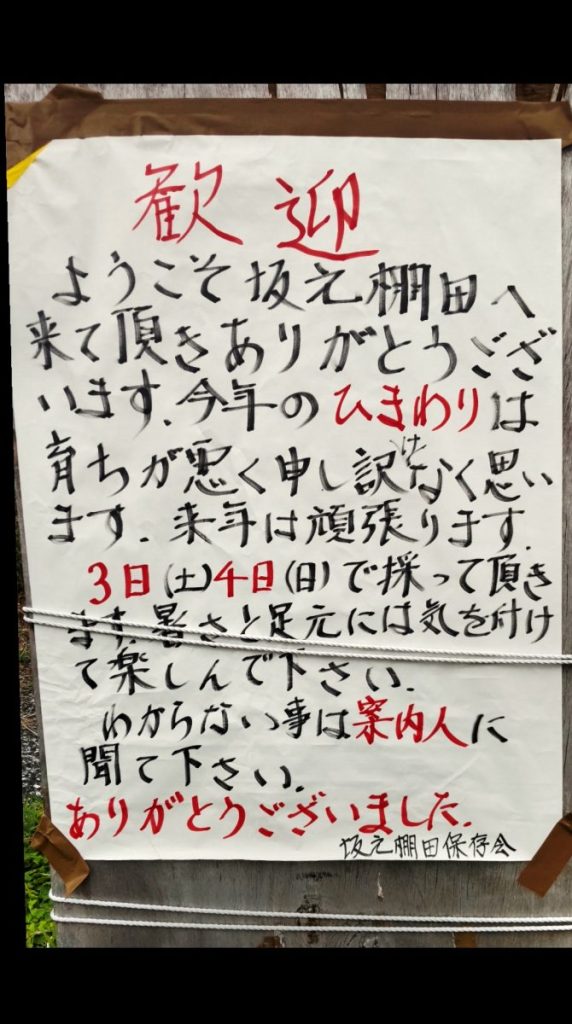 歓迎
ようこそ坂元棚田へ
来て頂きありがとうござ
います.今年のひまわりは
育ちが悪く申し訳けなく思い
ます.来年は頑張ります.
3日(土)4日(日)で採って頂き
ます.暑さと足元には気を付け
て楽しんで下さい.
わからない事は案内人に
聞て下さい.
ありがとうございました.
坂元棚田保存会